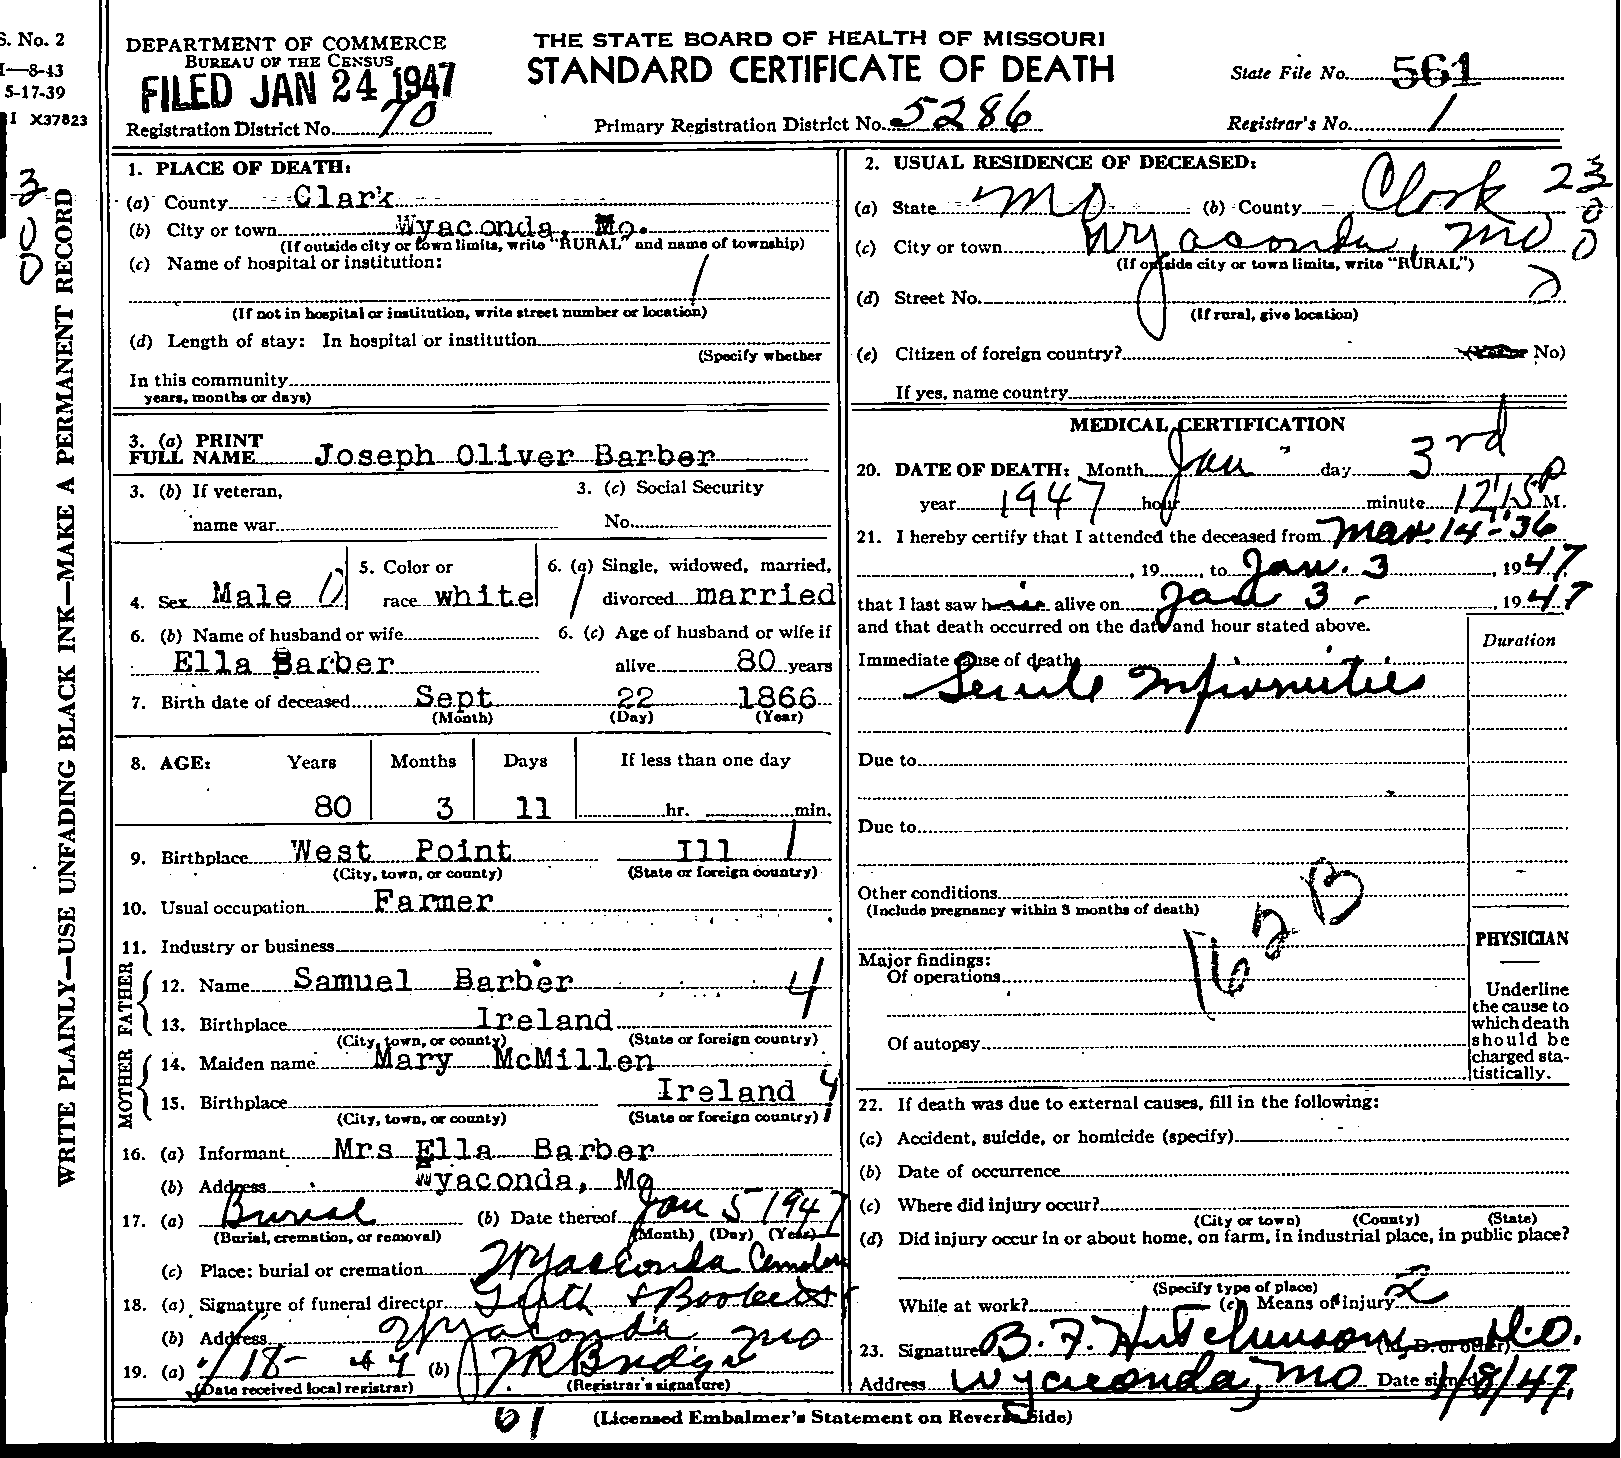 S. No. 2
I—8-43
5-17-39
I X37823
DEPARTMENT OF COMMERCE
BUREAU OF THE CENSUS
FILED JAN 24 1947
Registration District No. 70
THE STATE BOARD OF HEALTH OF MISSOURI
STANDARD CERTIFICATE OF DEATH
Primary Registration District No. 5286
State File No. 561
Registrar's No. 1
WRITE PLAINLY—USE UNFADING BLACK INK—MAKE A PERMANENT RECORD
1. PLACE OF DEATH:
(a) County Clark
(b) City or town Wyaconda, Mo.
(If outside city or town limits, write "RURAL" and name of township)
(c) Name of hospital or institution:
1
(If not in hospital or institution, write street number or location)
(d) Length of stay: In hospital or institution
(Specify whether
In this community
years, months or days)
3. (a) PRINT
FULL NAME Joseph Oliver Barber
3. (b) If veteran,
name war
3. (c) Social Security
No.
4. Sex Male
5. Color or
race white
6. (a) Single, widowed, married,
divorced married
6. (b) Name of husband or wife
Ella Barber
6. (c) Age of husband or wife if
alive 80 years
7. Birth date of deceased Sept 22 1866
(Month) (Day) (Year)
8. AGE: Years Months Days If less than one day
80 3 11 hr. min.
9. Birthplace West Point Ill 1
(City, town, or county) (State or foreign country)
10. Usual occupation Farmer
11. Industry or business
FATHER
12. Name Samuel Barber 4
13. Birthplace Ireland
(City, town, or county) (State or foreign country)
MOTHER
14. Maiden name Mary McMillen
15. Birthplace Ireland 4
(City, town, or county) (State or foreign country)
16. (a) Informant Mrs Ella Barber
(b) Address Wyaconda, Mo
17. (a) Burial (b) Date thereof Jan 5 1947
(Burial, cremation, or removal) (Month) (Day) (Year)
(c) Place: burial or cremation Wyaconda
18. (a) Signature of funeral director
(b) Address Wyaconda Mo
19. (a) 1/18-47 (b)
(Date received local registrar) (Registrar's signature)
2. USUAL RESIDENCE OF DECEASED:
(a) State Mo (b) County Clark 23
(c) City or town Wyaconda, Mo
(If outside city or town limits, write "RURAL")
(d) Street No.
(If rural, give location)
(e) Citizen of foreign country? No)
If yes, name country
MEDICAL CERTIFICATION
20. DATE OF DEATH: Month Jan day 3rd
year 1947 hour minute 12:15 P M.
21. I hereby certify that I attended the deceased from Mar. 14-'36
, 19 , to Jan. 3 , 1947
that I last saw him alive on Jan 3 - , 1947
and that death occurred on the date and hour stated above.
Duration
Immediate cause of death
Senile Infirmities
Due to
Due to
Other conditions
(Include pregnancy within 3 months of death)
162 B
Major findings:
Of operations
Of autopsy
PHYSICIAN
Underline
the cause to
which death
should be
charged sta-
tistically.
22. If death was due to external causes, fill in the following:
(a) Accident, suicide, or homicide (specify)
(b) Date of occurrence
(c) Where did injury occur?
(City or town) (County) (State)
(d) Did injury occur in or about home, on farm, in industrial place, in public place?
(Specify type of place)
While at work? (e) Means of injury 2
23. Signature B. F. Hutchinson, D.O. (M. D. or other)
Address Wyaconda, Mo Date signed 1/8/47.
61
(Licensed Embalmer's Statement on Reverse Side)